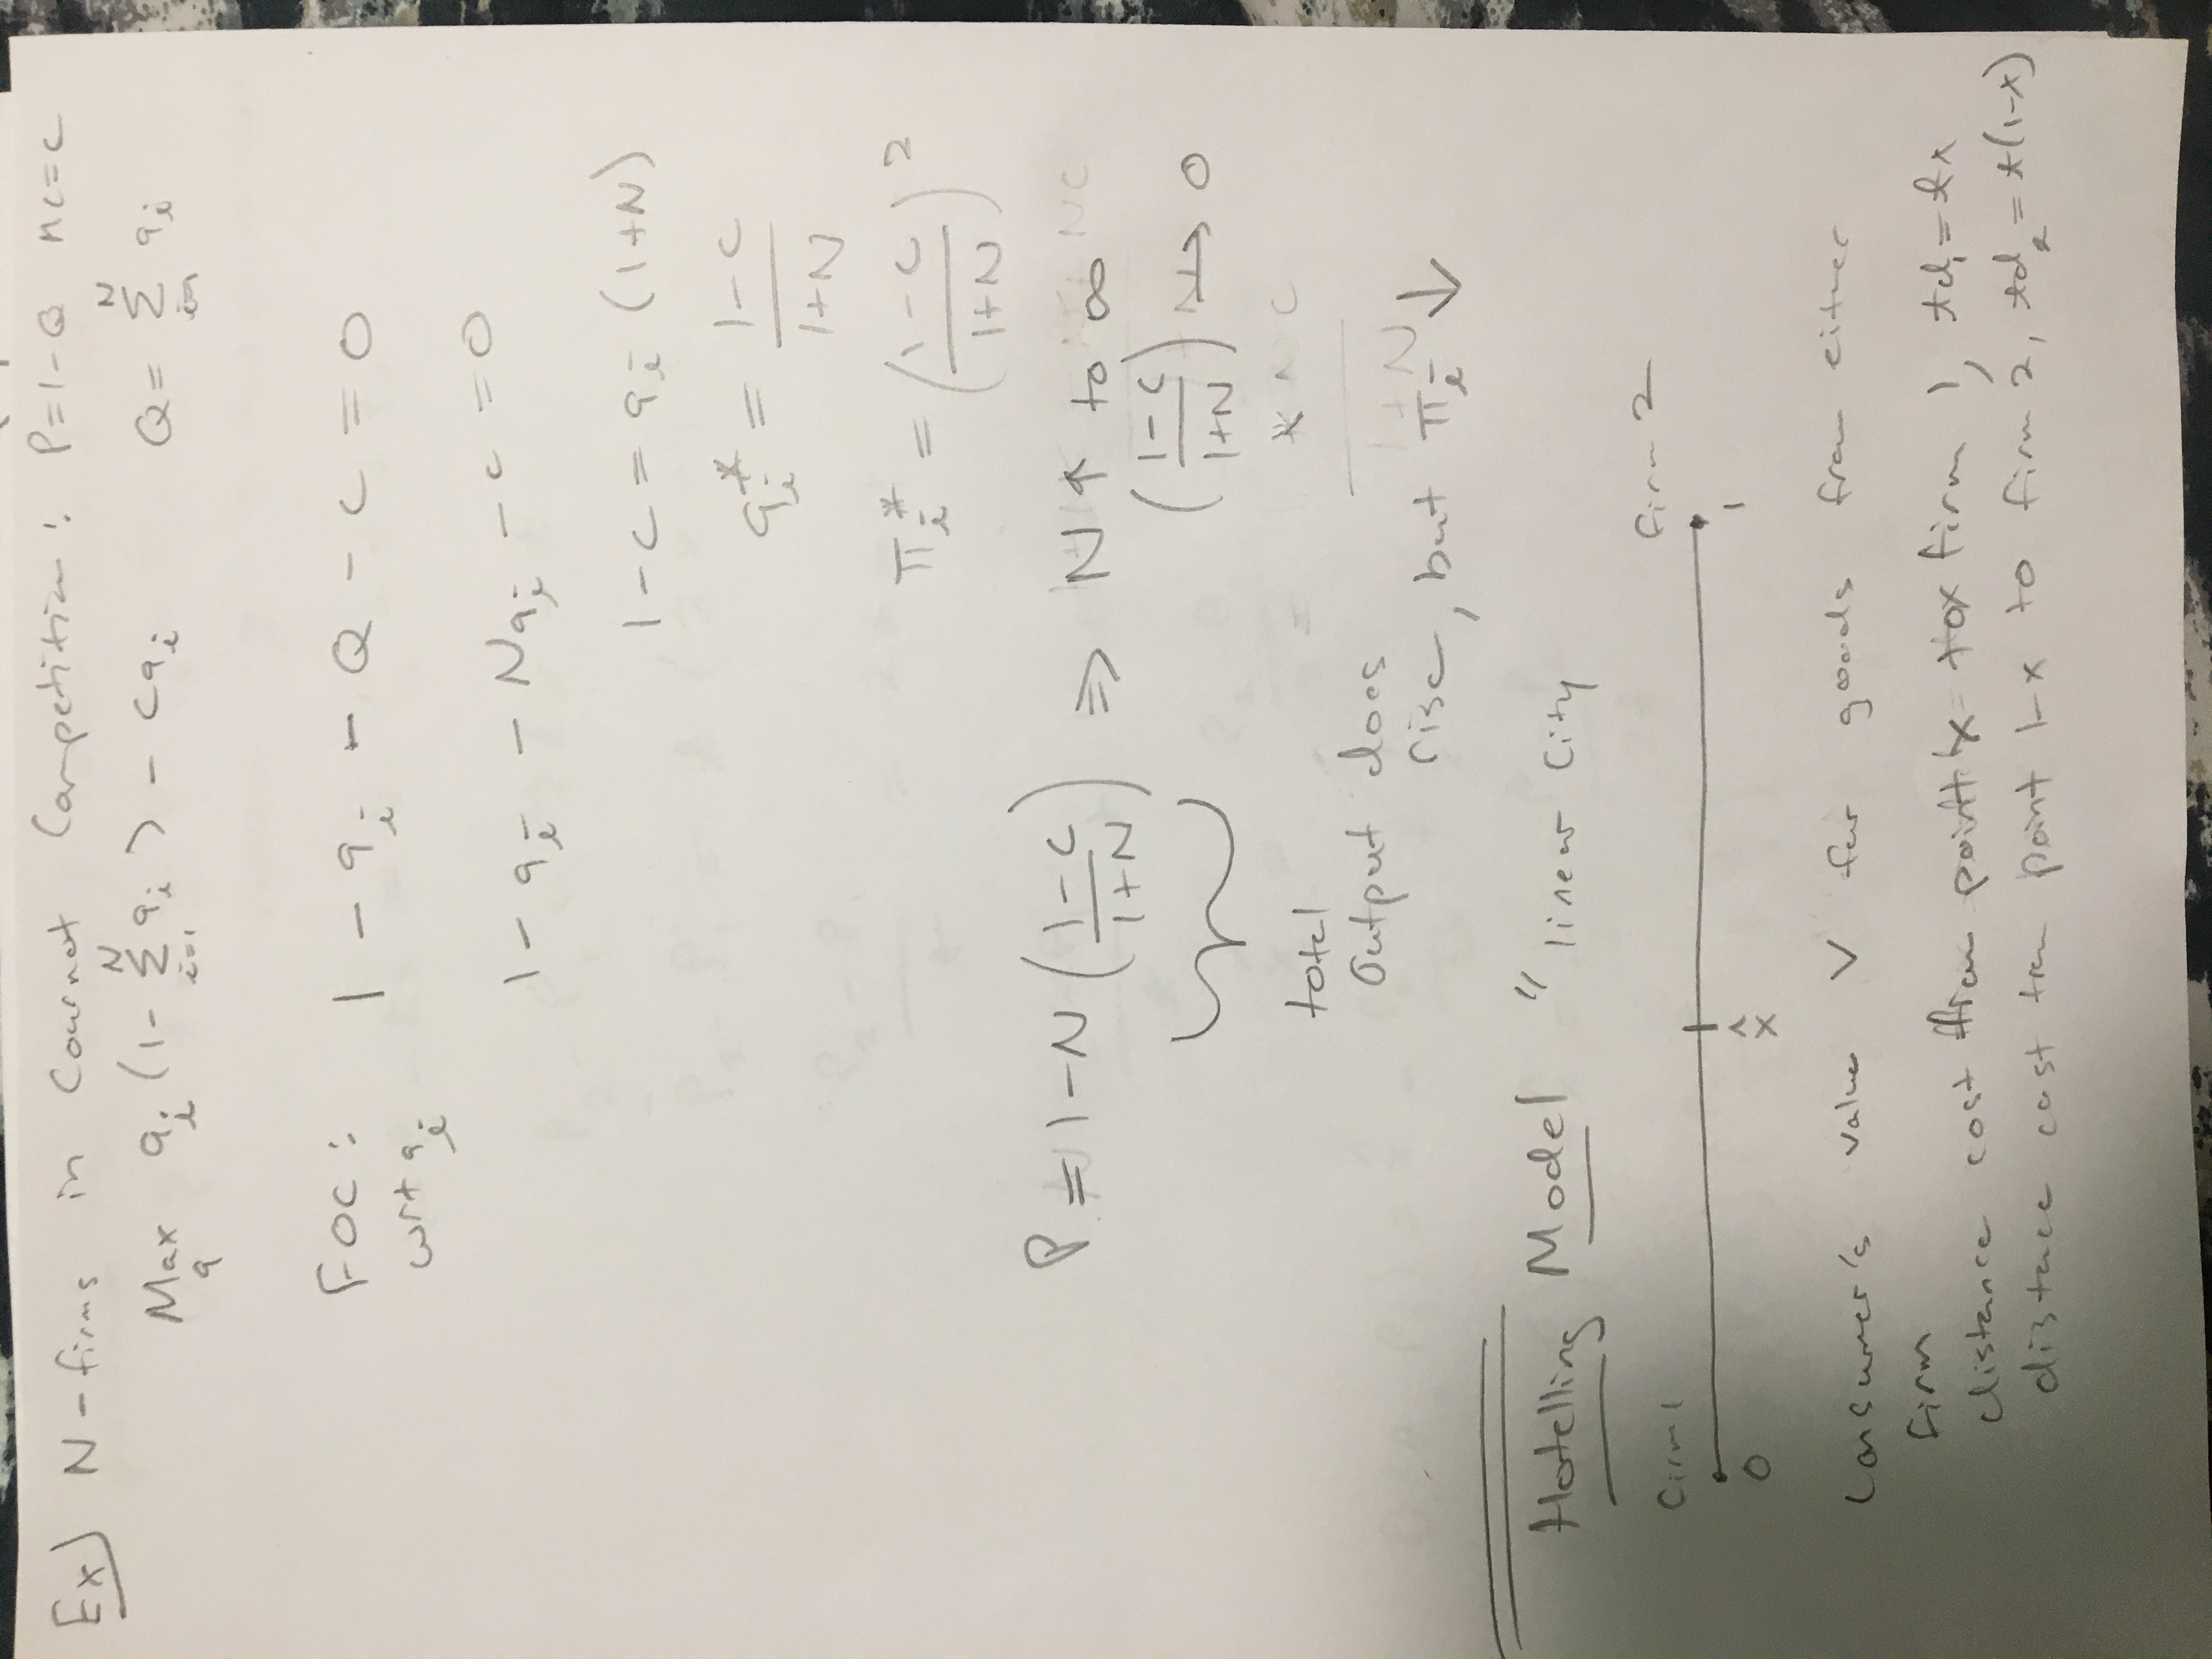 Ex) N-firms in Cournot Competition: P=1-Q MC=C
Max q_i (1- Σ q_i) - Cq_i Q= Σ q_i
q i=1 N i=1 N
FOC: 1 - q_i - Q - C = 0
wrt q_i
1 - q_i - Nq_i - C = 0
1-C = q_i (1+N)
q_i* = (1-C)/(1+N)
π_i* = ((1-C)/(1+N))²
P = 1-N((1-C)/(1+N)) ⇒ N↑ to ∞
((1-C)/(1+N)) → 0
total
Output does
rise, but π_i ↓
Hotelling Model "linear City
firm 1 firm 2
0 x̂ 1
Consumer's value V for goods from either
firm
distance cost from point x to firm 1, td₁ = tx
distance cost from point 1-x to firm 2, td₂ = t(1-x)